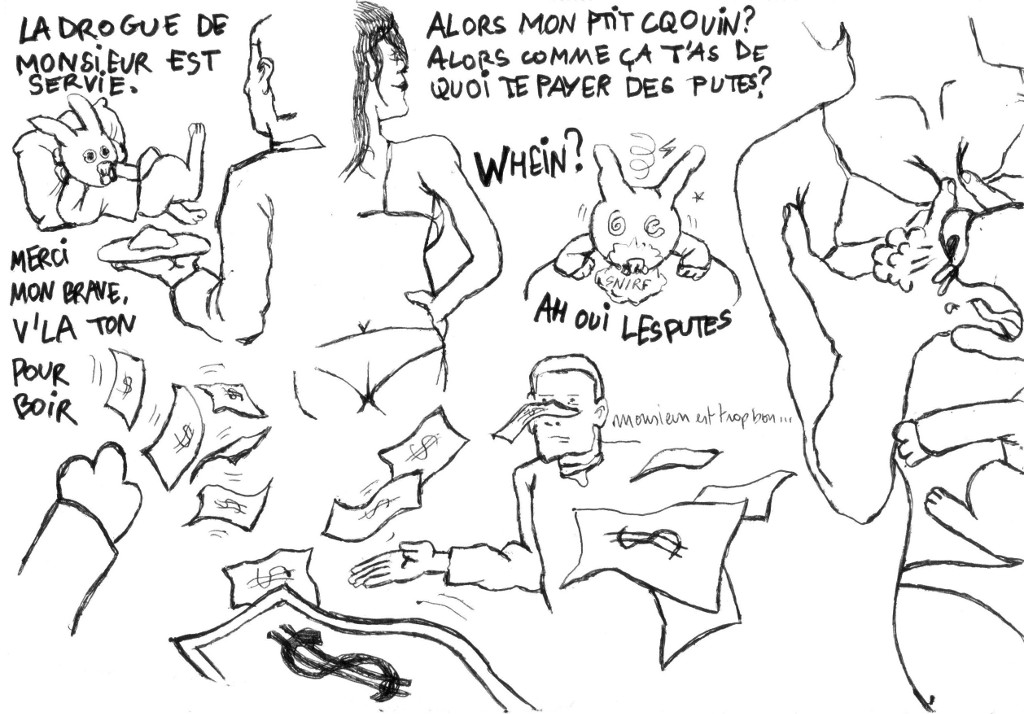 LA DROGUE DE
MONSIEUR EST
SERVIE.
ALORS MON PTIT CQOUIN?
ALORS COMME ÇA T'AS DE
QUOI TE PAYER DES PUTES?
WHEIN?
SNIRF
AH OUI LES PUTES
MERCI
MON BRAVE,
V'LA TON
POUR
BOIR
$
$
$
$
$
$
$
monsieur est trop bon...
$
$